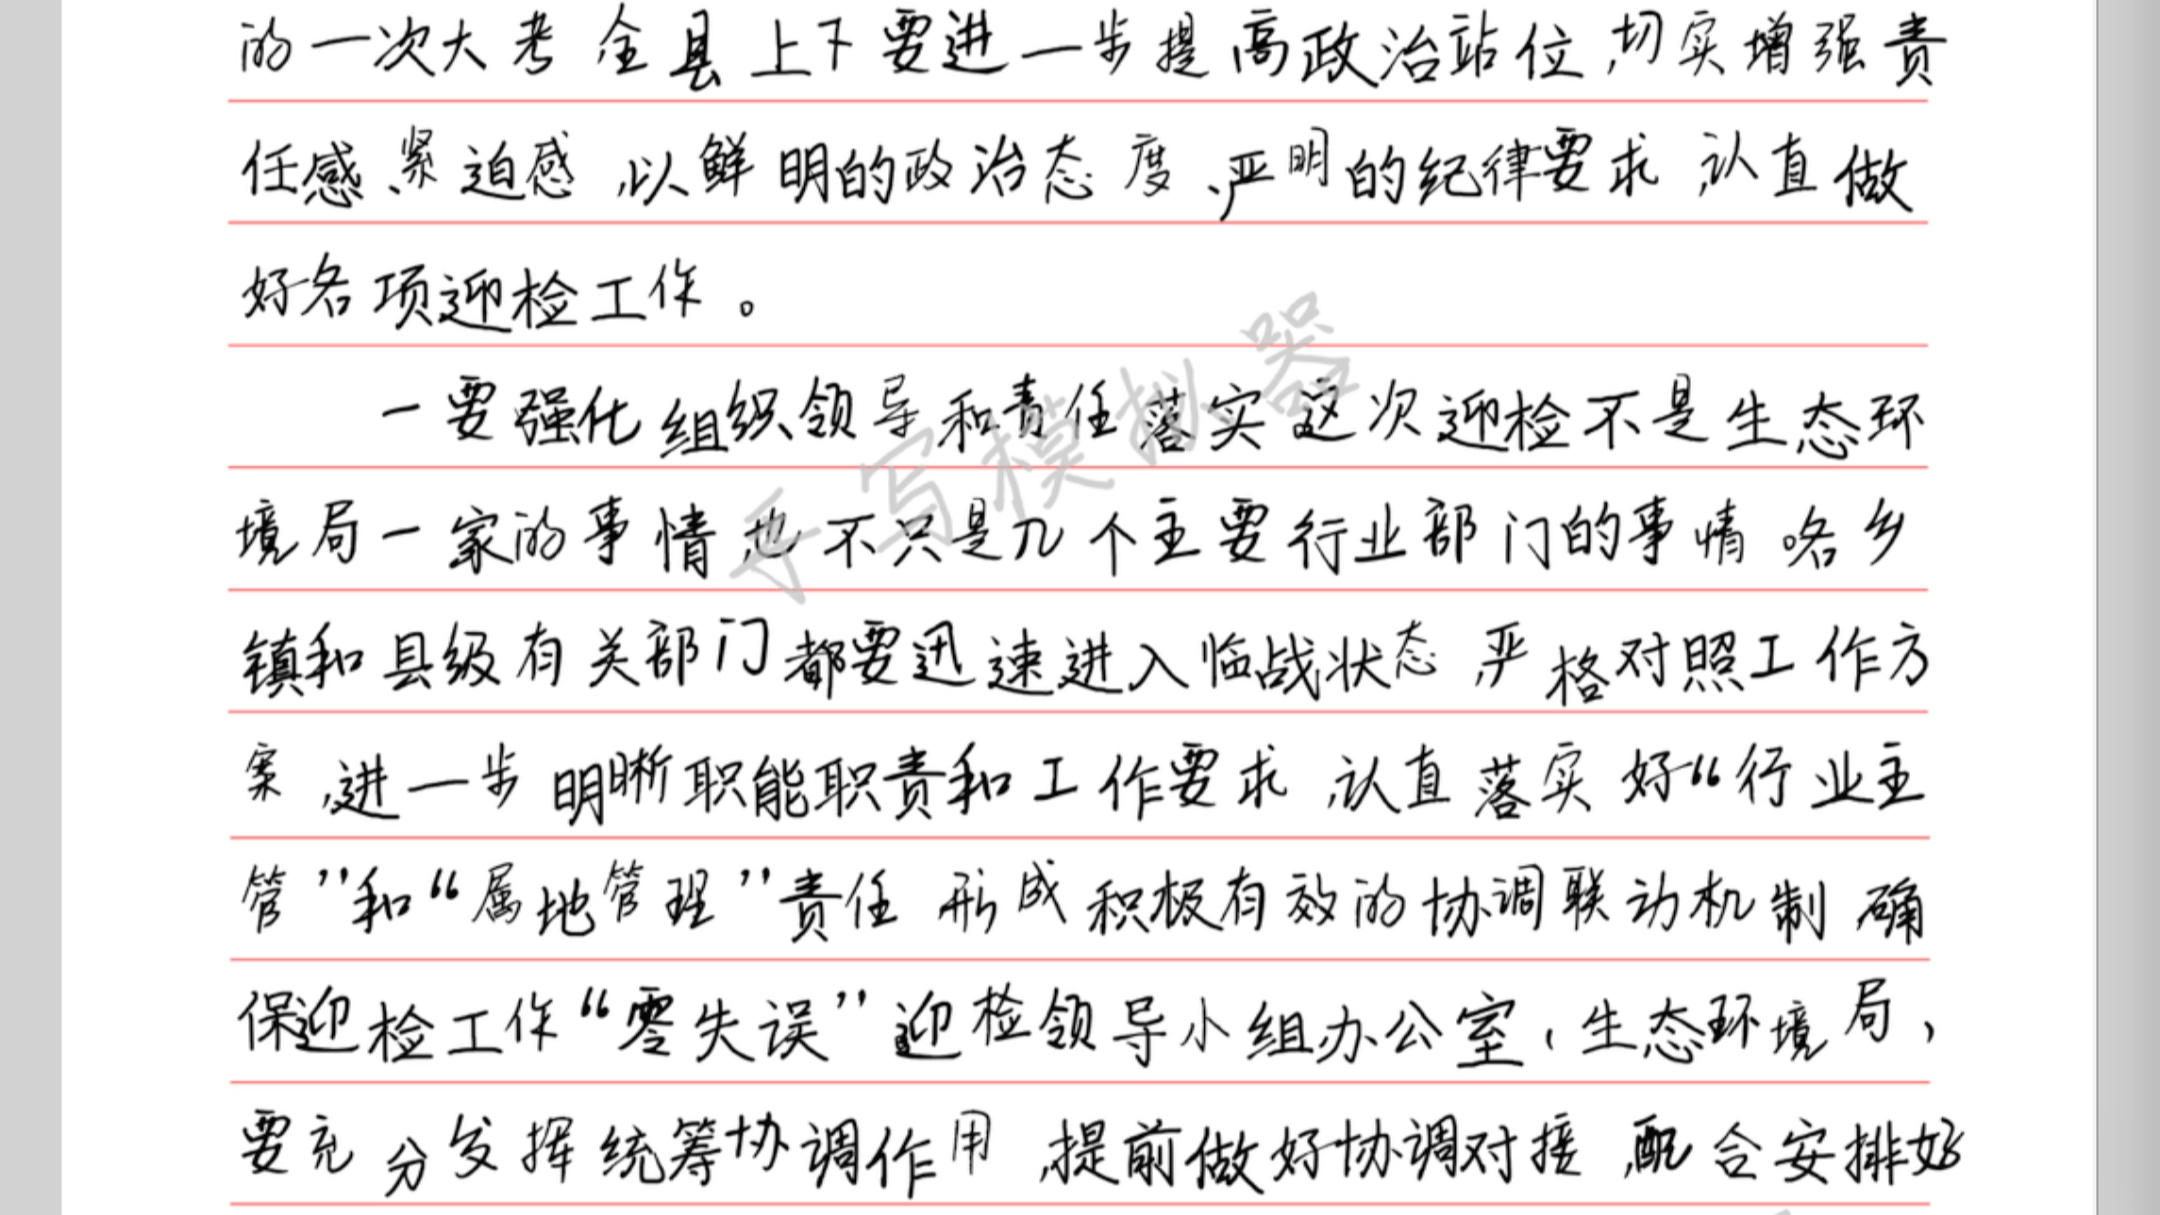 的一次大考全县上下要进一步提高政治站位,切实增强责
任感、紧迫感,以鲜明的政治态度、严明的纪律要求,认真做
好各项迎检工作。
一要强化组织领导和责任落实这次迎检不是生态环
境局一家的事情也不只是几个主要行业部门的事情,各乡
镇和县级有关部门都要迅速进入临战状态,严格对照工作方
案,进一步明晰职能职责和工作要求,认真落实好“行业主
管”和“属地管理”责任 形成积极有效的协调联动机制 确
保迎检工作“零失误”迎检领导小组办公室(生态环境局)
要充分发挥统筹协调作用,提前做好协调对接,配合安排好
手写模拟器